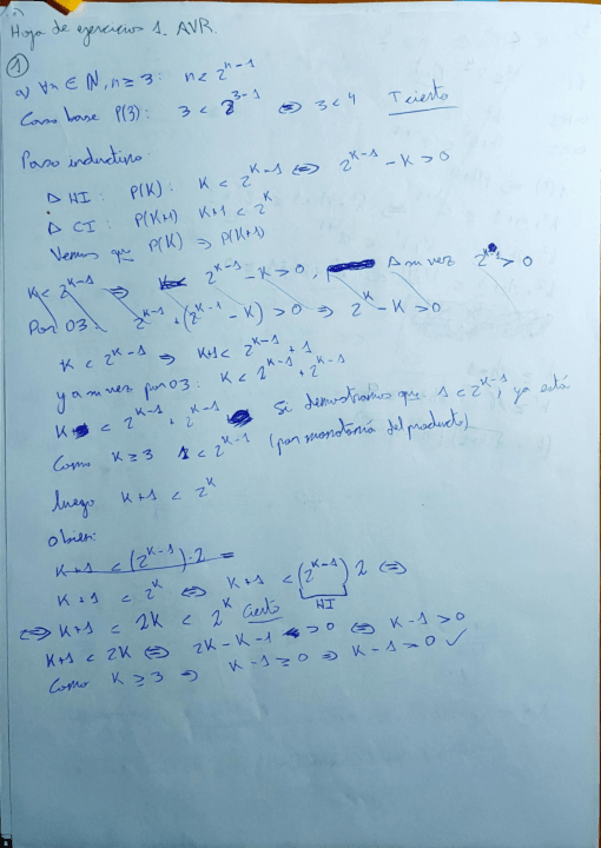 Hoja de ejercicios 1. AVR.
1
a) ∀n ∈ ℕ, n ≥ 3: n < 2^{n-1}
Caso base P(3): 3 < 2^{3-1} ⇔ 3 < 4 cierto
Paso inductivo:
▷ HI: P(K): K < 2^{K-1} ⇔ 2^{K-1} - K > 0
▷ CI: P(K+1) K+1 < 2^K
Veamos que P(K) ⇒ P(K+1)
K < 2^{K-1} ⇒ 2^{K-1} - K > 0, A su vez 2^{K-1} > 0
Por O3: 2^{K-1} + (2^{K-1} - K) > 0 ⇒ 2^K - K > 0
K < 2^{K-1} ⇒ K+1 < 2^{K-1} + 1
y a su vez por O3: K < 2^{K-1} + 2^{K-1}
K < 2^{K-1} + 2^{K-1} Si demostramos que 1 < 2^{K-1}, ya está
Como K ≥ 3 1 < 2^{K-1} (por monotonía del producto)
luego K+1 < 2^K
O bien:
K+1 < (2^{K-1})·2 =
K+1 < 2^K ⇔ K+1 < (2^{K-1}) 2 ⇔
HI
⇔ K+1 < 2K < 2^K Cierto
K+1 < 2K ⇔ 2K - K - 1 > 0 ⇔ K-1 > 0
Como K ≥ 3 ⇒ K-1 ≥ 0 ⇒ K-1 > 0 ✓